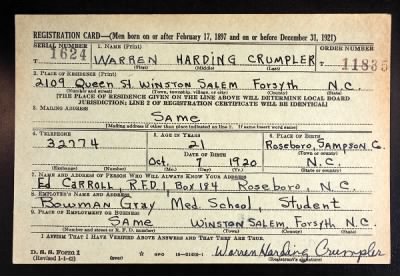 REGISTRATION CARD—(Men born on or after February 17, 1897 and on or before December 31, 1921)
SERIAL NUMBER 1. NAME (Print) ORDER NUMBER
1624 WARREN HARDING CRUMPLER 11835
(First) (Middle) (Last)
2. PLACE OF RESIDENCE (Print)
2109 Queen St. WINSTON SALEM Forsyth N.C.
(Number and street) (Town, township, village, or city) (County) (State)
[THE PLACE OF RESIDENCE GIVEN ON THE LINE ABOVE WILL DETERMINE LOCAL BOARD
JURISDICTION; LINE 2 OF REGISTRATION CERTIFICATE WILL BE IDENTICAL]
3. MAILING ADDRESS
SAME
[Mailing address if other than place indicated on line 2. If same insert word same]
4. TELEPHONE 5. AGE IN YEARS 6. PLACE OF BIRTH
32774 21 Roseboro, SAMPSON Co.
DATE OF BIRTH (Town or county)
Oct. 7 1920 N.C.
(Exchange) (Number) (Mo.) (Day) (Yr.) (State or country)
7. NAME AND ADDRESS OF PERSON WHO WILL ALWAYS KNOW YOUR ADDRESS
Ed CARROLL R.F.D. 1, Box 184 Roseboro, N.C.
8. EMPLOYER'S NAME AND ADDRESS
Bowman Gray Med. School, Student
9. PLACE OF EMPLOYMENT OR BUSINESS
SAME WINSTON SALEM, Forsyth N.C.
(Number and street or R. F. D. number) (Town) (County) (State)
I AFFIRM THAT I HAVE VERIFIED ABOVE ANSWERS AND THAT THEY ARE TRUE.
D. S. S. Form 1
(Revised 1-1-42) (over) GPO Warren Harding Crumpler
(Registrant's signature)